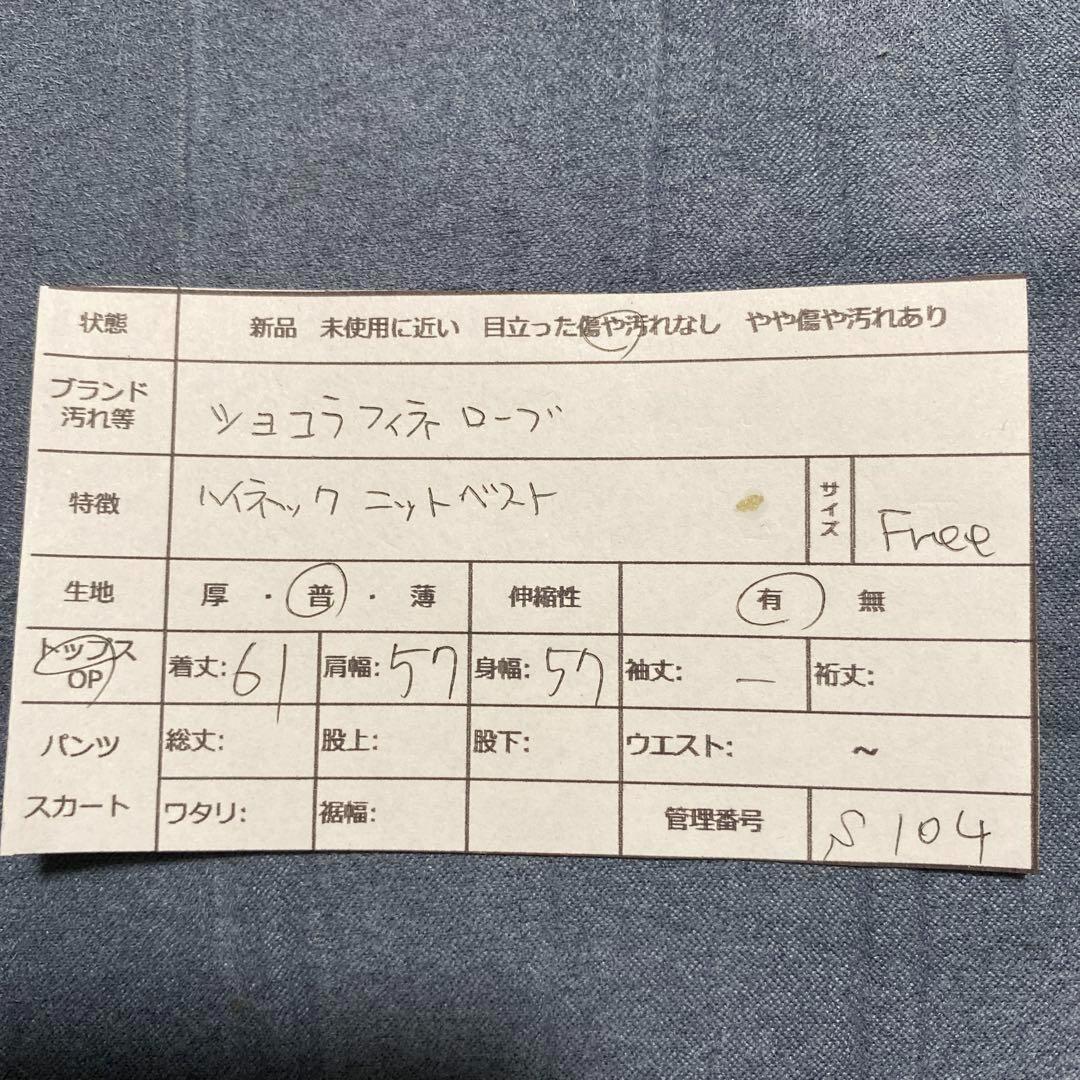 状態 新品 未使用に近い 目立った傷や汚れなし やや傷や汚れあり
ブランド
汚れ等
ショコラフィネ ローブ
特徴 ハイネック ニットベスト サイズ Free
生地 厚・普・薄 伸縮性 有 無
トップス
OP
着丈:61 肩幅:57 身幅:57 袖丈: ー 裄丈:
パンツ 総丈: 股上: 股下: ウエスト: ~
スカート ワタリ: 裾幅: 管理番号 S104